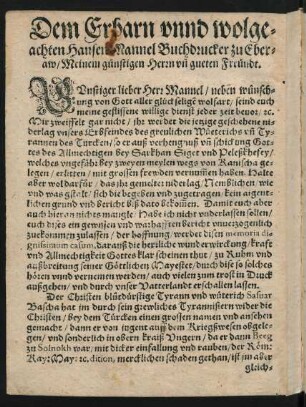 Dem Erharn vnnd wolge-
achten Hansen Mannel Buchdrucker zu Eber-
aw/ Meinem günstigen Herrn vñ gueten Freündt.
GVnstiger lieber Herr Mannel/ neben wünsch-
ung von Gott aller glückselige wolfart/ seind euch
meine geflissene willige dienst jeder zeit beuor/ ꝛc.
Mir zweiffelt gar nicht/ ihr werdet die jetzige geschehene nie
derlag vnsers Erbfeindes des greulichen Wüeterichs vñ Ty-
rannen des Turcken/ so er auß verhengnuß vñ schickung Got-
tes des Allmechtigen bey Sarkhan Siget vnd Peleskhefzy/
welches vngefähr bey zweyen meylen wegs von Kanischa ge-
legen/ erlitten/ mit grossen frewden vernumen haben. Halte
aber wol darfür/ das jhr gemelter niderlag Menschlichen/ wie
vnd was gestalt/ sich die begeben vnd zugetragen kein aigent-
lichen grund vnd bericht biß dato bekomen. Damit euch aber
auch hieran nichts mangle/ Habe ich nicht vnderlassen sollen/
euch diseu ein gewissen vnd warhafften bericht vnuerzogenlich
zuekommen zulassen/ der hoffnung/ werdet disen memoria di-
gnissimum casum, darauß die herzliche wunderwirckung/ krafft
vnd Allmechtigkeit Gottes klar scheinen thut/ zu Ruhm vnd
außbreitung seiner Göttlichen Mayestet/ durch dise so solches
hören vnnd vernemen werden/ auch vielen zum trost in Druck
außgehen/ vnd durch vnser Vatterlandt erschallen lassen.
Der Christen blutdürstige Tyrann vnd wüterich Saswar
Bascha hat im durch sein grewliches Tyrannisiern wider die
Christen/ bey dem Türcken einen grossen namen vnd ansehen
gemacht/ dann er von jugent auff dem Kriegßwesen obgele-
gen/ vnd sonderlich in obern krayß Vngern/ da er dann Beeg
zu Solnokh war/ mit dicker einfallung vnd rauben/ der Röm:
Kay: May: ꝛc. dition, mercklichen schaden gethan/ ist im aber
gleich-